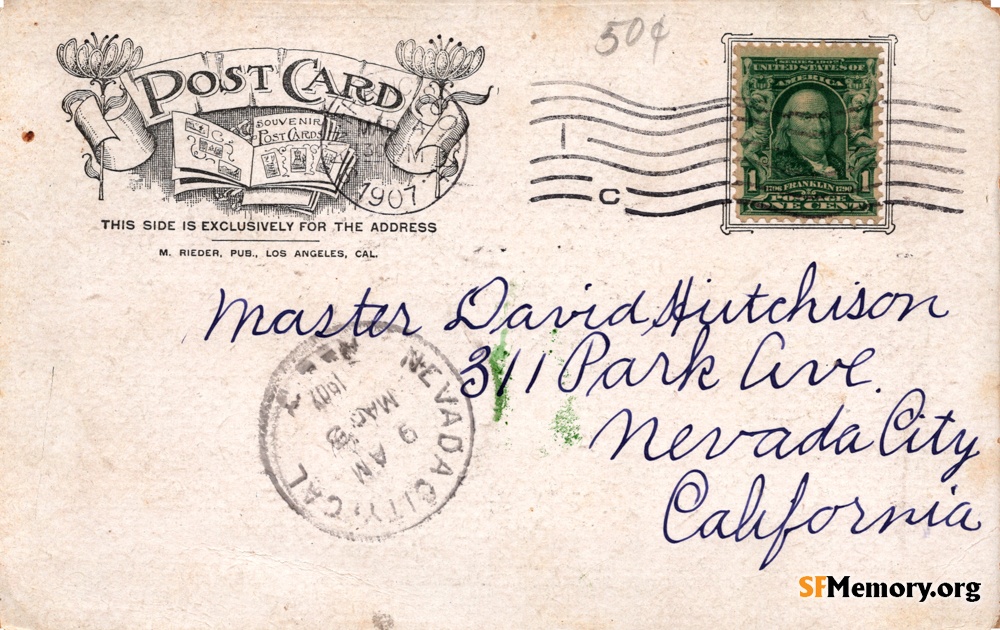 50¢
POST CARD
SOUVENIR
POST CARDS
1907
C
SERIES 1902
UNITED STATES OF
AMERICA
1 1
FRANKLIN
POSTAGE
ONE CENT
THIS SIDE IS EXCLUSIVELY FOR THE ADDRESS
M. RIEDER, PUB., LOS ANGELES, CAL.
Master David Hutchison
311 Park Ave.
Nevada City
California
NEVADA CITY, CAL
MAR
9
AM
1907
SFMemory.org